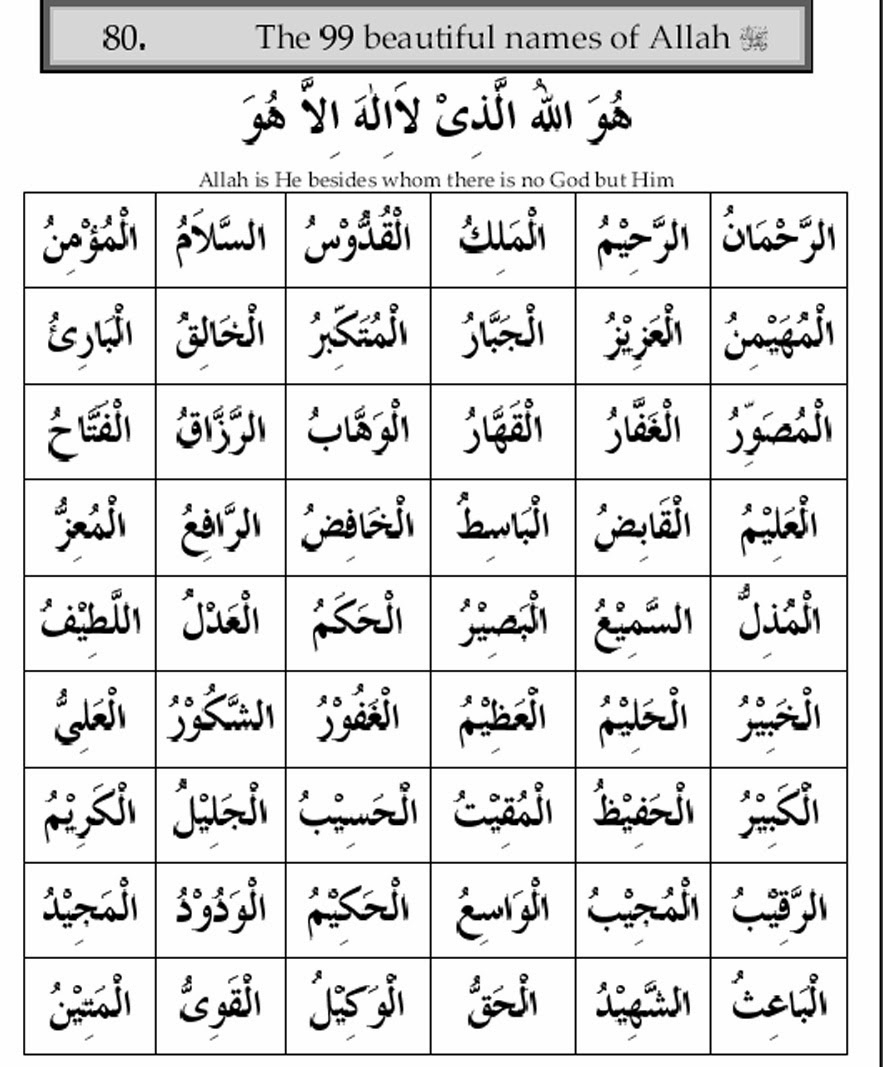 80. The 99 beautiful names of Allah ﷻ
هُوَ اللهُ الَّذِىْ لاَاِلٰهَ اِلاَّ هُوَ
Allah is He besides whom there is no God but Him
الرَّحْمَانُ الرَّحِيْمُ الْمَلِكُ الْقُدُّوْسُ السَّلاَمُ الْمُؤْمِنُ
الْمُهَيْمِنُ الْعَزِيْزُ الْجَبَّارُ الْمُتَكَبِّرُ الْخَالِقُ الْبَارِئُ
الْمُصَوِّرُ الْغَفَّارُ الْقَهَّارُ الْوَهَّابُ الرَّزَّاقُ الْفَتَّاحُ
الْعَلِيْمُ الْقَابِضُ الْبَاسِطُ الْخَافِضُ الرَّافِعُ الْمُعِزُّ
الْمُذِلُّ السَّمِيْعُ الْبَصِيْرُ الْحَكَمُ الْعَدْلُ اللَّطِيْفُ
الْخَبِيْرُ الْحَلِيْمُ الْعَظِيْمُ الْغَفُوْرُ الشَّكُوْرُ الْعَلِىُّ
الْكَبِيْرُ الْحَفِيْظُ الْمُقِيْتُ الْحَسِيْبُ الْجَلِيْلُ الْكَرِيْمُ
الرَّقِيْبُ الْمُجِيْبُ الْوَاسِعُ الْحَكِيْمُ الْوَدُوْدُ الْمَجِيْدُ
الْبَاعِثُ الشَّهِيْدُ الْحَقُّ الْوَكِيْلُ الْقَوِىُّ الْمَتِيْنُ